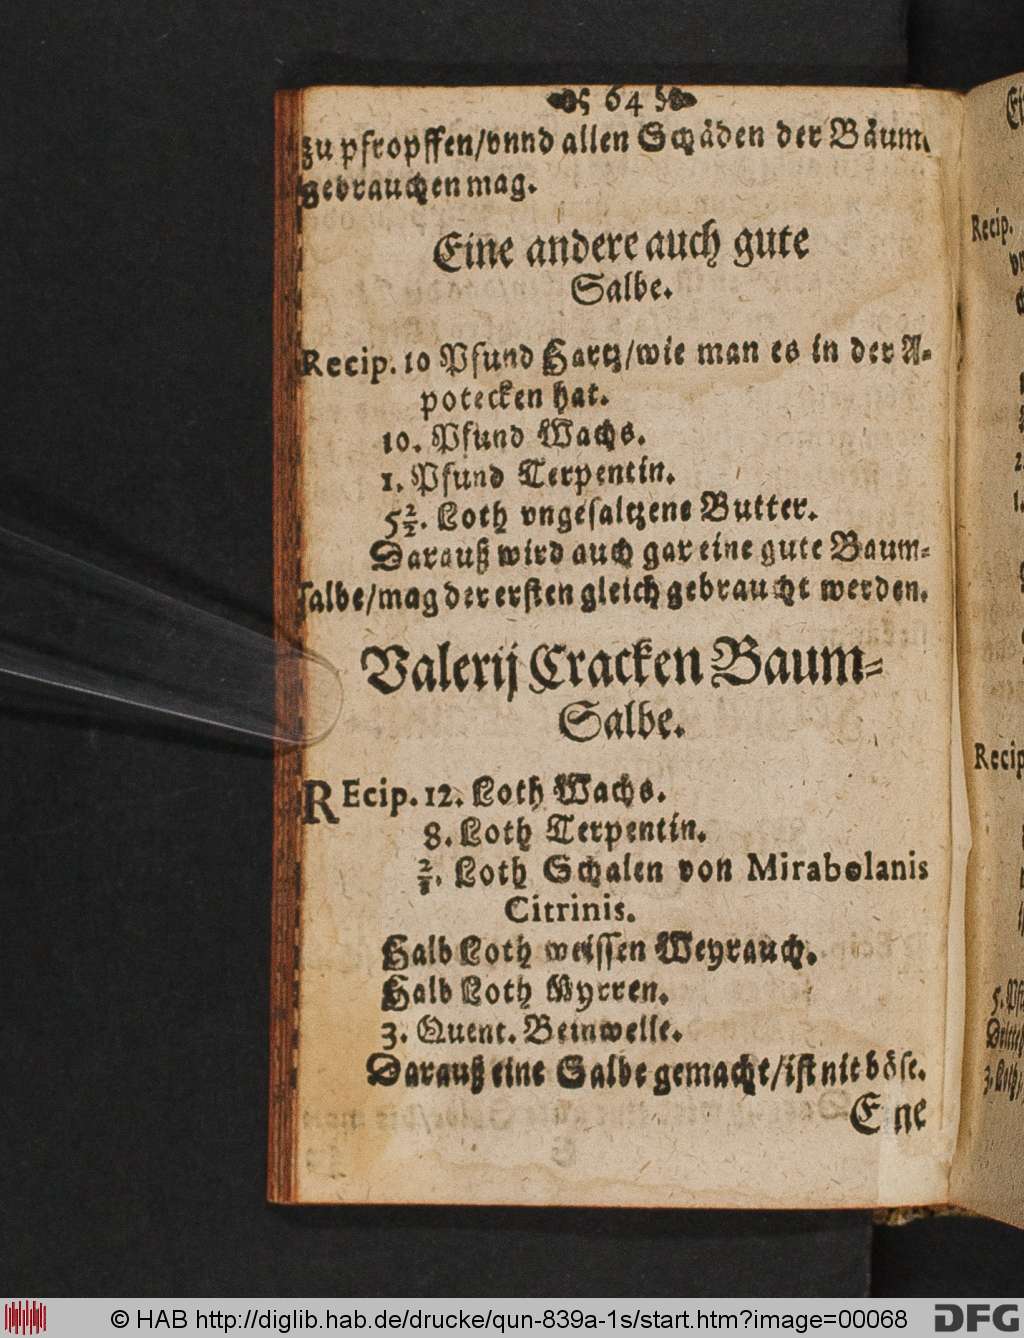 64
zu pfropffen/vnnd allen Schäden der Bäum
gebrauchen mag.
Eine andere auch gute
Salbe.
Recip. 10 Pfund Hartz/wie man es in der A-
potecken hat.
10. Pfund Wachs.
1. Pfund Terpentin.
5 2/2. Loth vngesaltzene Butter.
Darauß wird auch gar eine gute Baum-
salbe/mag der ersten gleich gebraucht werden.
Valerij Cracken Baum-
Salbe.
REcip. 12. Loth Wachs.
8. Loth Terpentin.
Loth Schalen von Mirabolanis
Citrinis.
Halb Loth weissen Weyrauch.
Halb Loth Myrren.
3. Quent. Beinwelle.
Darauß eine Salbe gemacht/ist nit böse.
E ne
Recip.
2.
1.
Recip
© HAB http://diglib.hab.de/drucke/qun-839a-1s/start.htm?image=00068
DFG